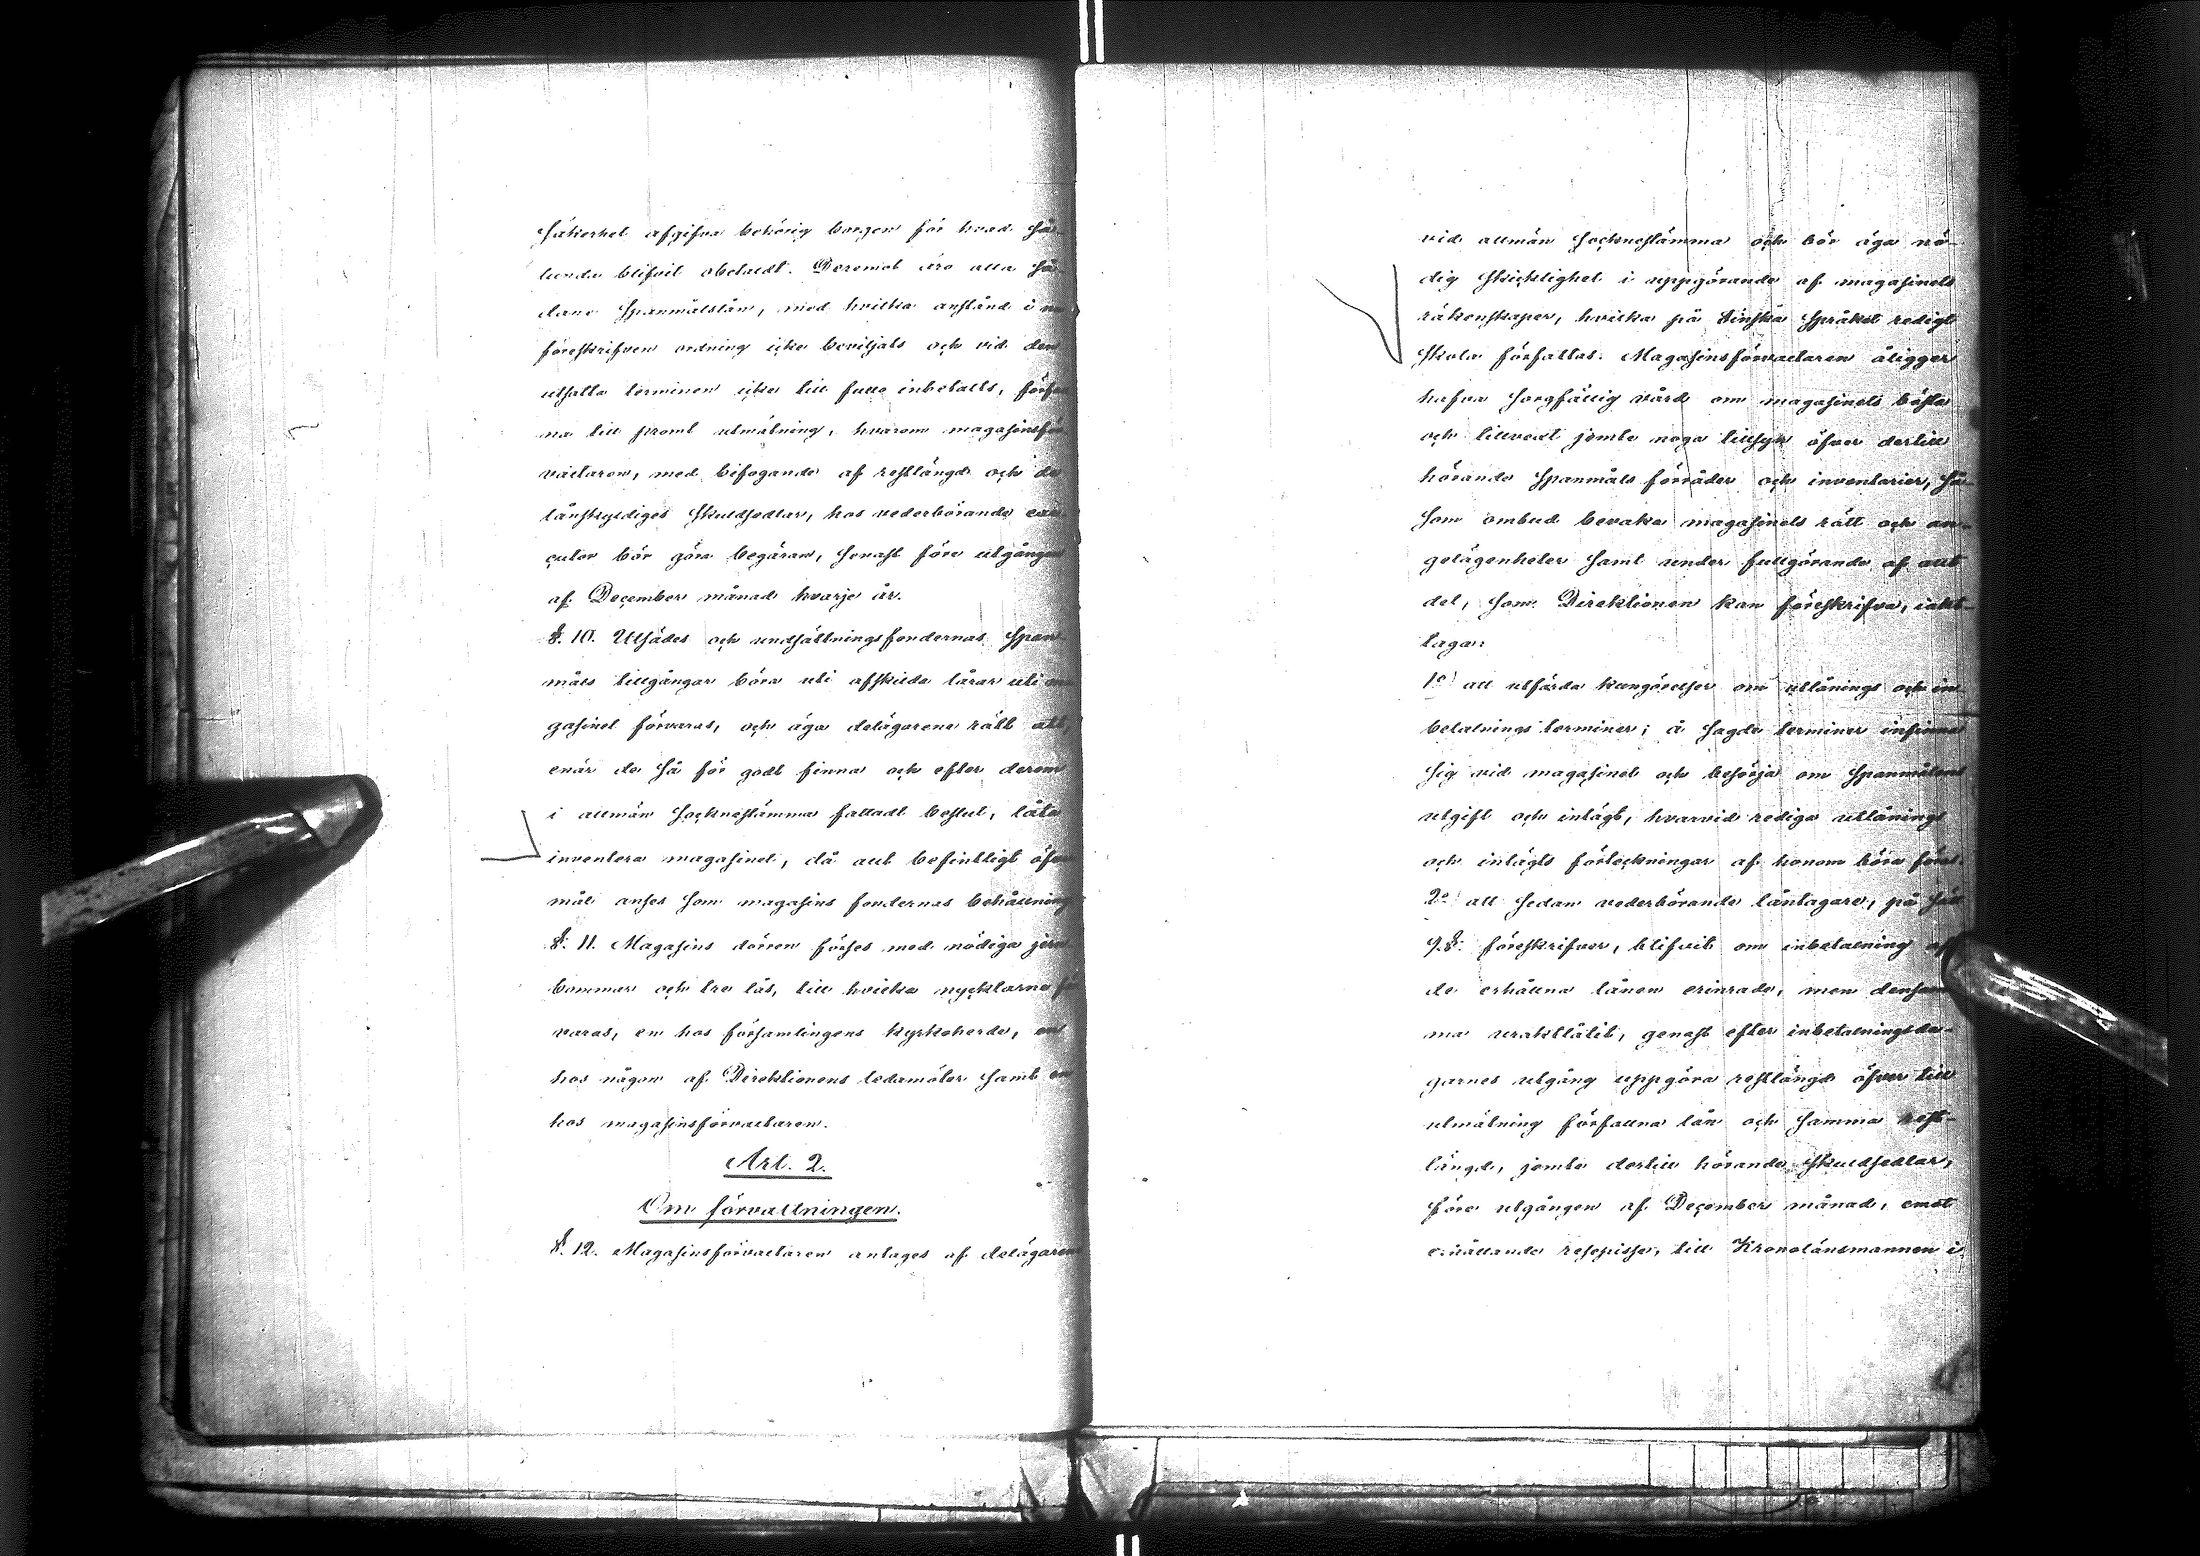 säkerhet afgifva behörig borgen för hvad så
lunda blifvit obetaldt. Deremot äro alla så
dane spanmålslån, med hvilka anstånd i
föreskrifven ordning icke beviljats och vid den
utsatta terminen icke till fullo inbetalts, förfal
na till promt utmätning, hvarom magasinsför
valtaren, med bifogande af restlängd och de
lånskyldiges skuldsedlar, hos vederbörande exe
cutor bör göra begäran, senast före utgången
af December månad hvarje år.
§. 10. Utsädes och undsättningsfondernas span
måls tillgångar böra uti afskilda lårar uti ma
gasinet förvaras, och äga delägarene rätt att,
enär de så för godt finna och efter derom
i allmän socknestämma fattadt beslut, låta
inventera magasinet, då allt befintligt öfver
mål anses som magasins fondernas behållning
§. 11. Magasins dörren förses med nödiga jern
bommar och tre lås, till hvilka nycklarne för
varas, en hos församlingens kyrkoherde, en
hos någon af Direktionens ledamöter samt en
hos magasinsförvaltaren.
Art. 2.
Om förvaltningen.
§. 12. Magasinsförvaltaren antages af delägarene
vid allmän socknestämma och bör äga nö-
dig skicklighet i uppgörande af magasinets
räkenskaper, hvilka på finska språket redigt
skola författas. Magasinsförvaltaren åligger
hafva sorgfällig vård om magasinets bästa
och tillvext jemte noga tillsyn öfver dertill
hörande spanmåls förråder och inventarier, så-
som ombud bevaka magasinets rätt och an-
gelägenheter samt under fullgörande af allt
det, som Direktionen kan föreskrifva, iakt-
taga:
1o att utfärda kungörelser om utlånings och in-
betalnings terminer; å sagde terminer infinna
sig vid magasinet och besörja om spanmålens
utgift och inlägt, hvarvid rediga utlånings
och inlägts förteckningar af honom böra föras.
2o att sedan vederbörande låntagare, på sätt
9.§. föreskrifver, blifvit om inbetalning af
de erhållna lånen erinrade, men densam
ma uraktlåtit, genast efter inbetalningsda-
garnes utgång uppgöra restlängd öfver till
utmätning förfallna lån och samma rest-
längd, jemte dertill hörande skuldsedlar,
före utgången af December månad, emot
erhållande resepisse, till Kronolänsmannen i